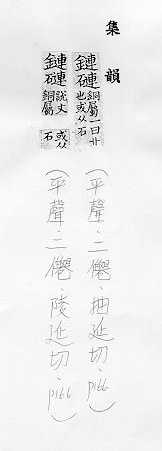 集韻
鏈䃛銅屬一曰卝也或从石
(平聲.二僊.抽延切.p166)
鏈䃛說文銅屬或从石
(平聲.二僊.陵延切.p166)